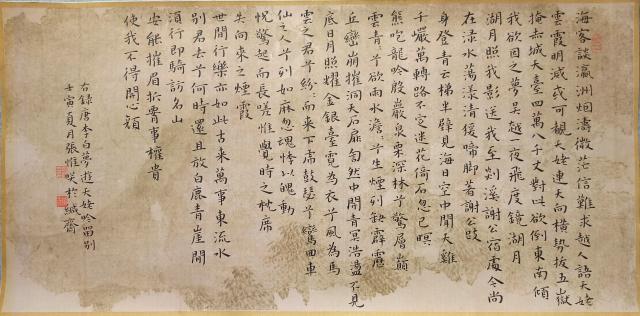 海客談瀛洲烟濤微茫信難求越人語天姥
雲霞明滅或可覩天姥連天向橫勢拔五嶽
掩赤城天臺四萬八千丈對此欲倒東南傾
我欲因之夢吳越一夜飛度鏡湖月
湖月照我影送我至剡溪謝公宿處今尚
在淥水蕩漾清猿啼脚著謝公屐
身登青雲梯半壁見海日空中聞天雞
千巖萬轉路不定迷花倚石忽已暝
熊咆龍吟殷巖泉栗深林兮驚層巔
雲青〻兮欲雨水澹〻兮生煙列缺霹靂
丘巒崩摧洞天石扉訇然中開青冥浩蕩不見
底日月照耀金銀臺霓為衣兮風為馬
雲之君兮紛〻而來下虎鼓瑟兮鸞回車
仙之人兮列如麻忽魂悸以魄動
怳驚起而長嗟惟覺時之枕席
失向來之煙霞
世間行樂亦如此古來萬事東流水
別君去兮何時還且放白鹿青崖間
須行即騎訪名山
安能摧眉折腰事權貴
使我不得開心顏
右錄唐李白夢遊天姥吟留別
壬寅夏月張惟於緘齋